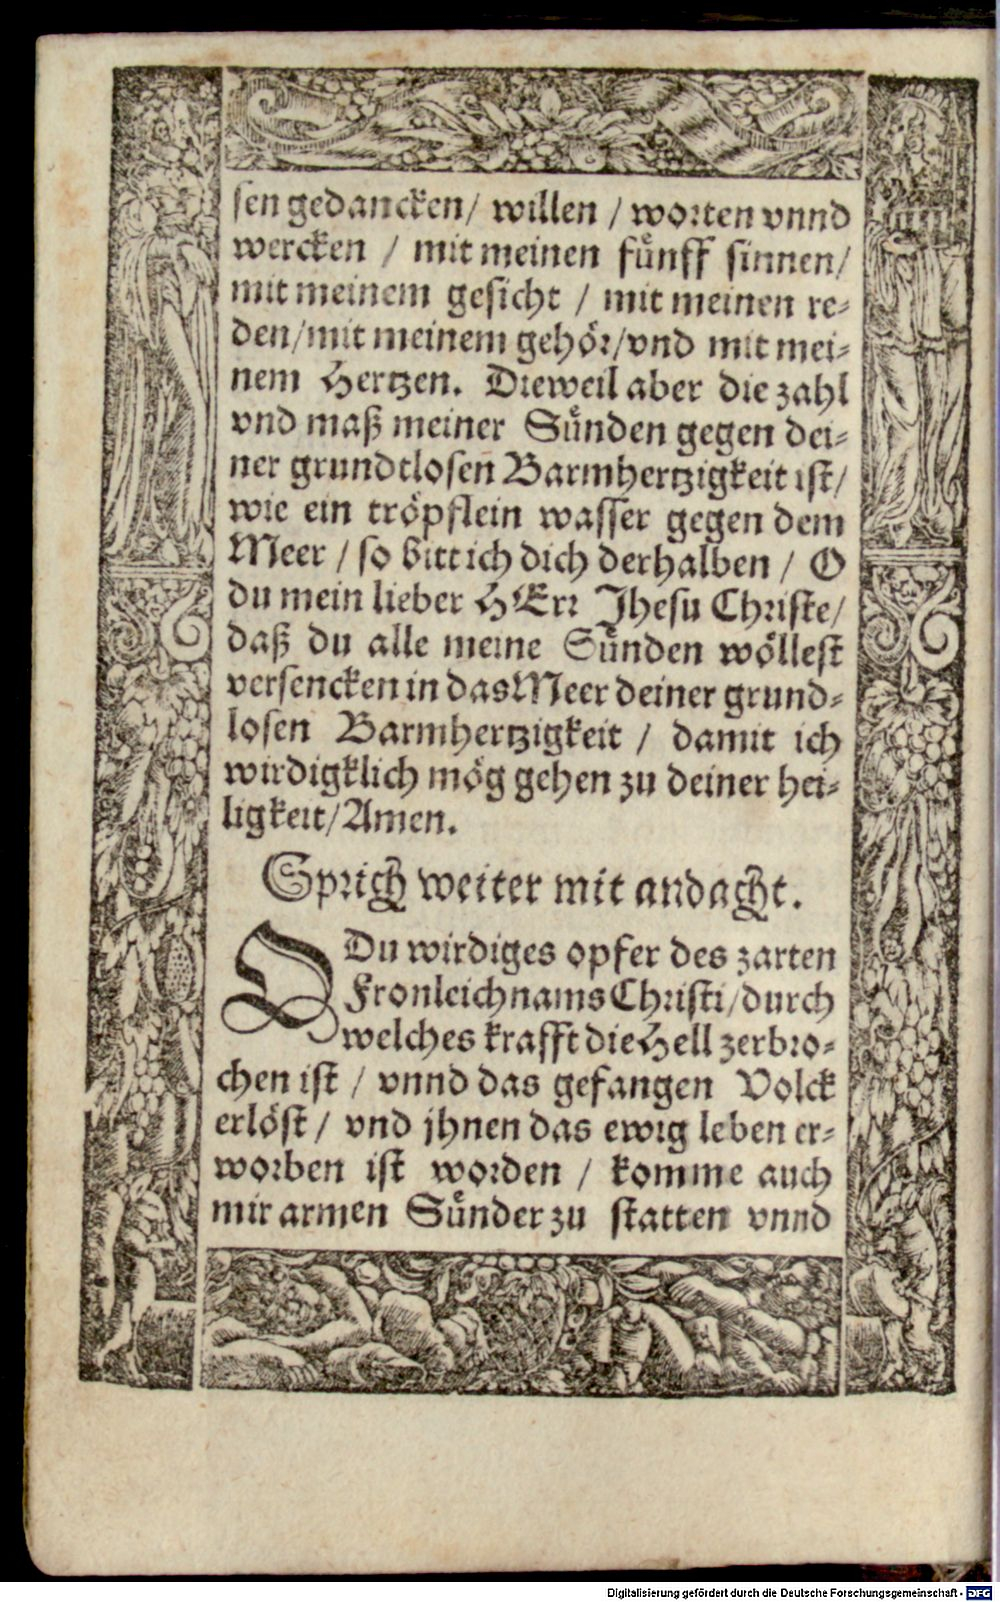 sen gedancken/ willen / worten vnnd
wercken / mit meinen fuͤnff sinnen/
mit meinem gesicht / mit meinen re-
den/mit meinem gehoͤr/vnd mit mei-
nem Hertzen. Dieweil aber die zahl
vnd maß meiner Suͤnden gegen dei-
ner grundtlosen Barmhertzigkeit ist/
wie ein troͤpflein wasser gegen dem
Meer / so bitt ich dich derhalben / O
du mein lieber HErr Jhesu Christe/
daß du alle meine Suͤnden woͤllest
versencken in das Meer deiner grund-
losen Barmhertzigkeit / damit ich
wirdigklich moͤg gehen zu deiner hei-
ligkeit/Amen.
Sprich weiter mit andacht.
O Du wirdiges opfer des zarten
Fronleichnams Christi/durch
welches krafft die Hell zerbro-
chen ist / vnnd das gefangen Volck
erloͤst / vnd jhnen das ewig leben er-
worben ist worden / komme auch
mir armen Suͤnder zu statten vnnd
Digitalisierung gefördert durch die Deutsche Forschungsgemeinschaft - DFG